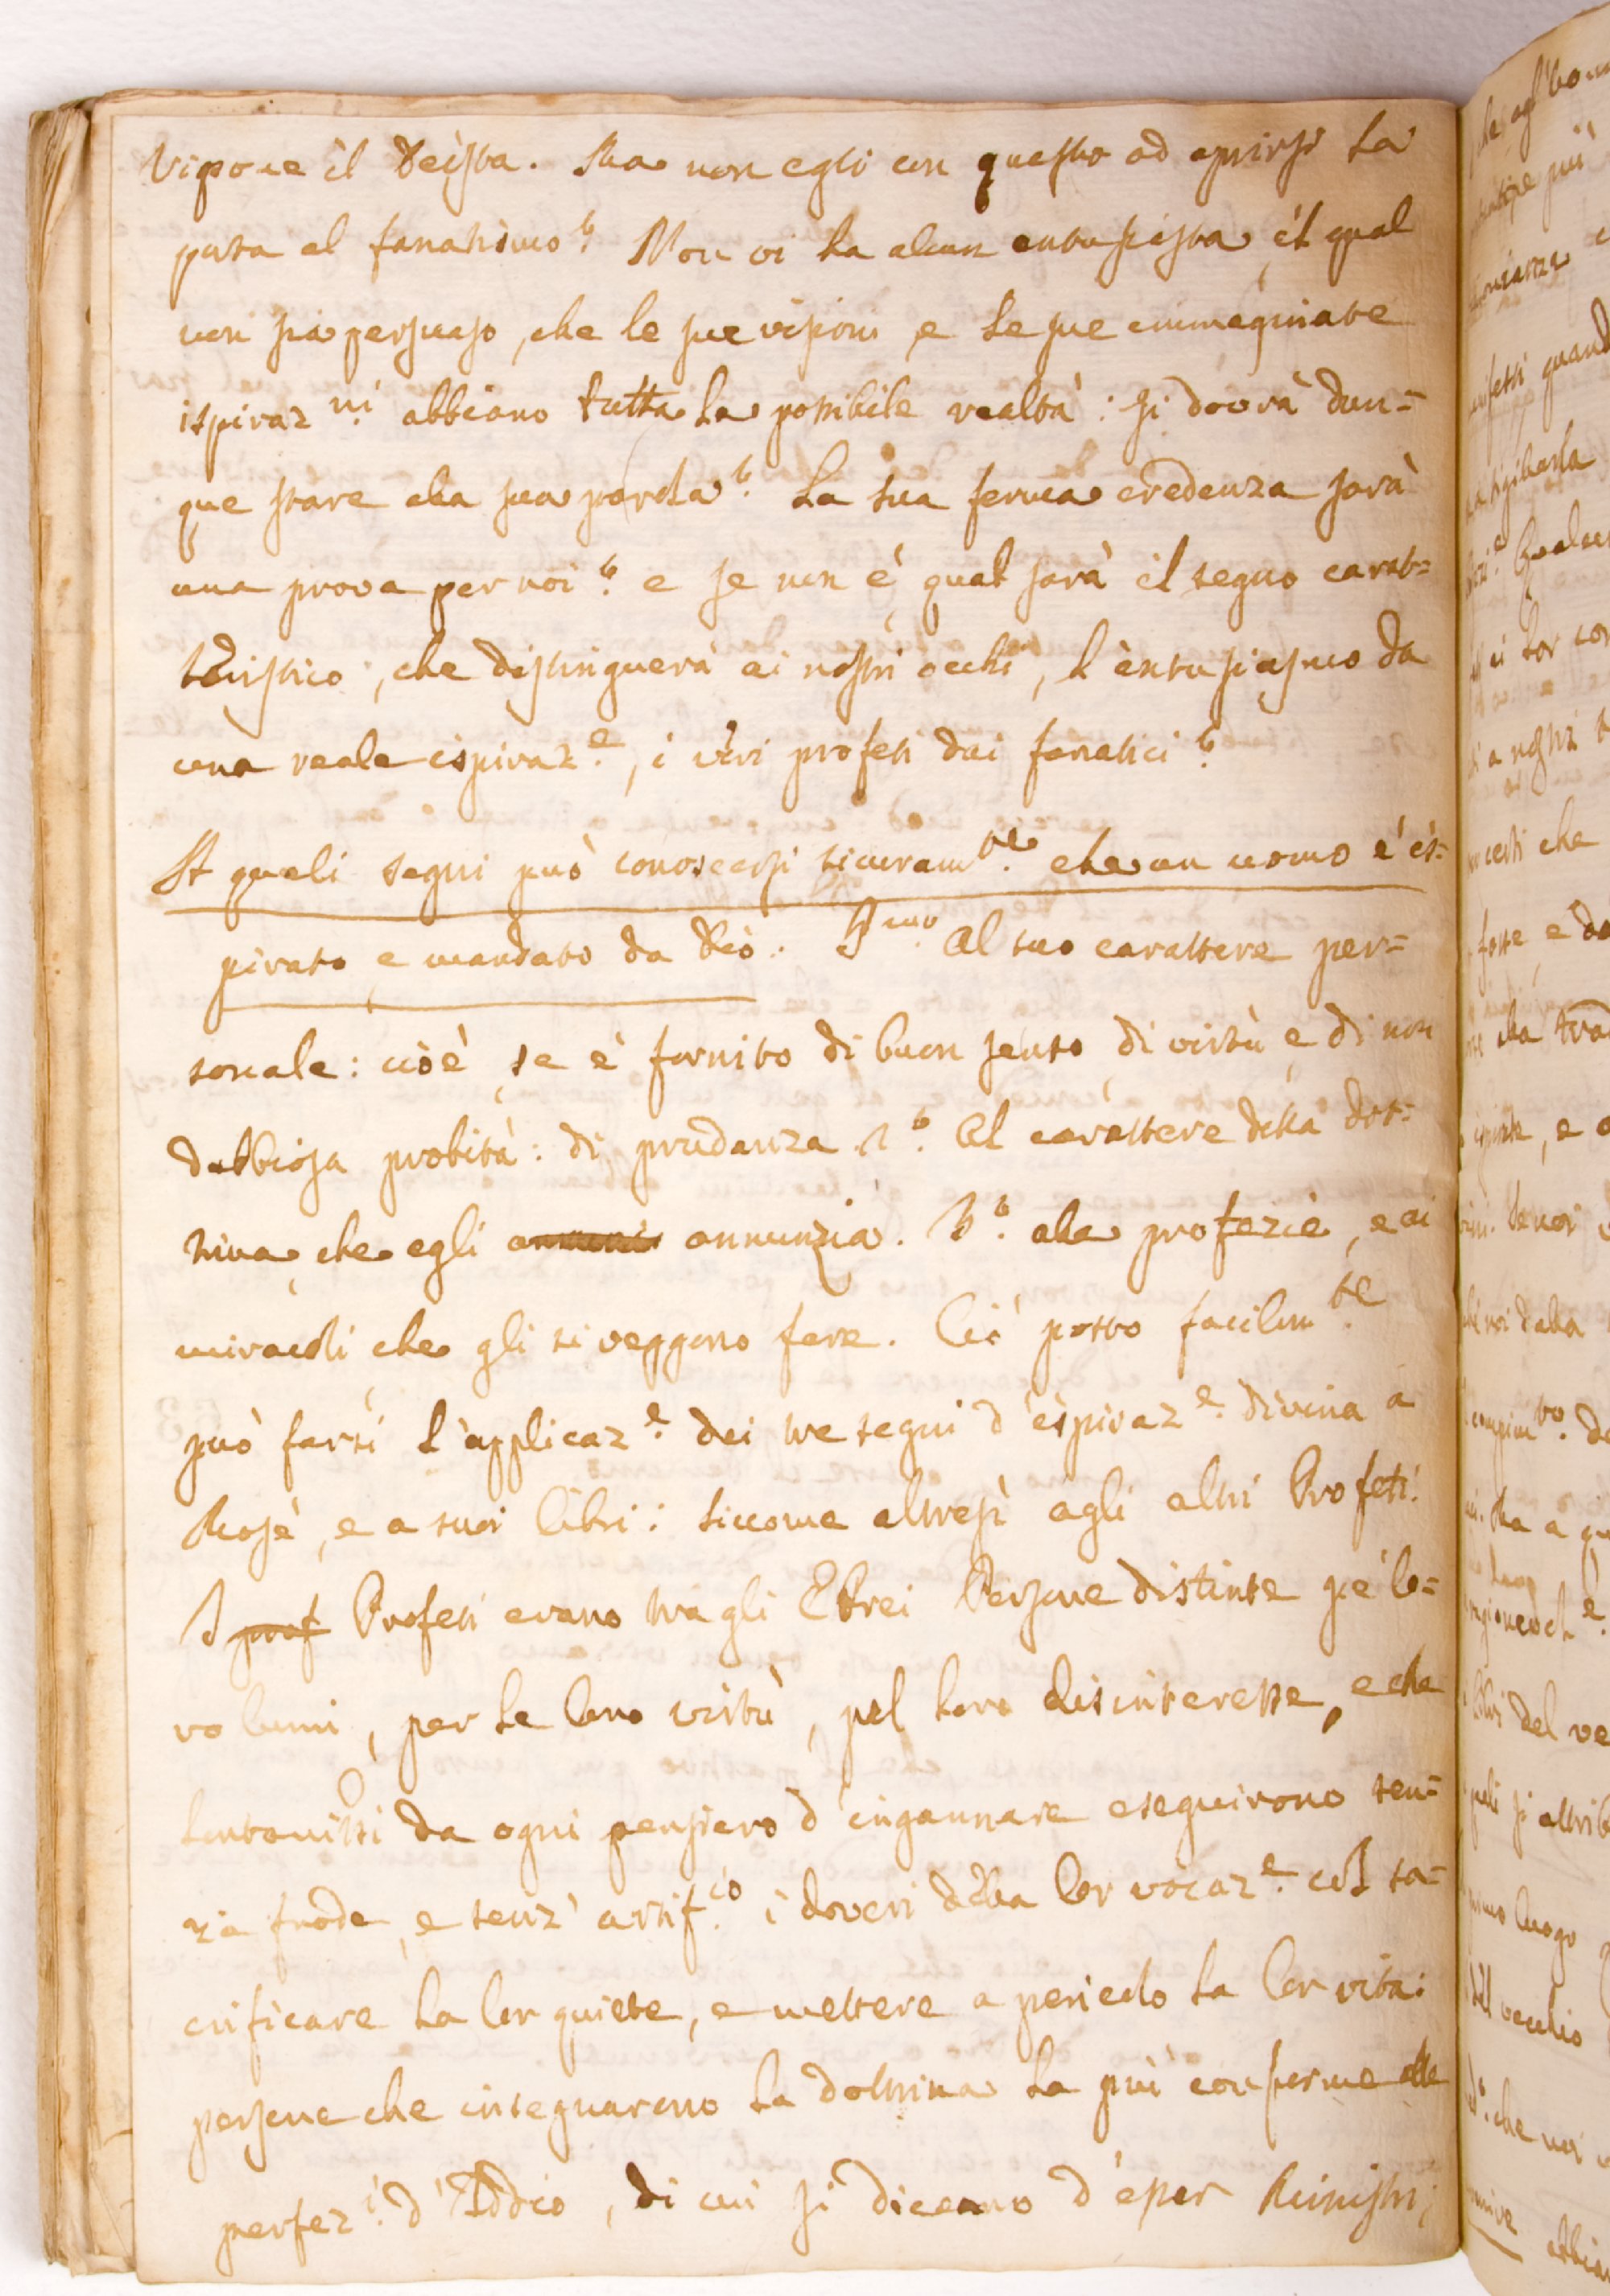 Vipone il Deista. Ma non egli con questo ad aprirsi la
porta al fanatismo? Non vi ha alcun entusiasta, il qual
non sia persuaso, che le sue visioni, e le sue immaginate
ispiraz.ni abbiano tutta la possibile realtà: si dovrà dun=
que stare alla sua parola? La sua ferma credenza sarà
una prova per noi? e se non è, qual sarà il segno carat=
teristico, che distinguerà ai nostri occhi, l'entusiasmo da
una reale ispiraz.e, i veri profeti dai fanatici?
A quali segni può conoscersi sicuram.te che un uomo è is=
pirato, e mandato da Dio: P.mo Al suo carattere per=
sonale: cioè, se è fornito di buon senso, di virtù, e di non
dubbiosa probità: di prudenza. 2.o Al carattere della dot=
trina, che egli annunzia. 3.o alla profezie, e ai
miracoli che gli si veggono fare. Ciò posto facilm.te
può farsi l'applicaz.e dei tre segni d'ispiraz.e divina a
Mosè, e a suoi libri: siccome altresì agli altri Profeti.
I prof Profeti erano trà gli Ebrei Persone distinte pe' lo=
ro lumi, per le loro virtù, pel loro disinteresse, e che
lontanissi da ogni pensiero d'ingannare eseguirono sen=
za frode, e senz'artif.io i doveri della lor vocaz.e col sa=
crificare la lor quiete, e mettere a pericolo la lor vita:
persone che insegnarono la dottrina la più conforme alle
perfez.i d'Iddio, di cui si diceano d'esser Ministri;